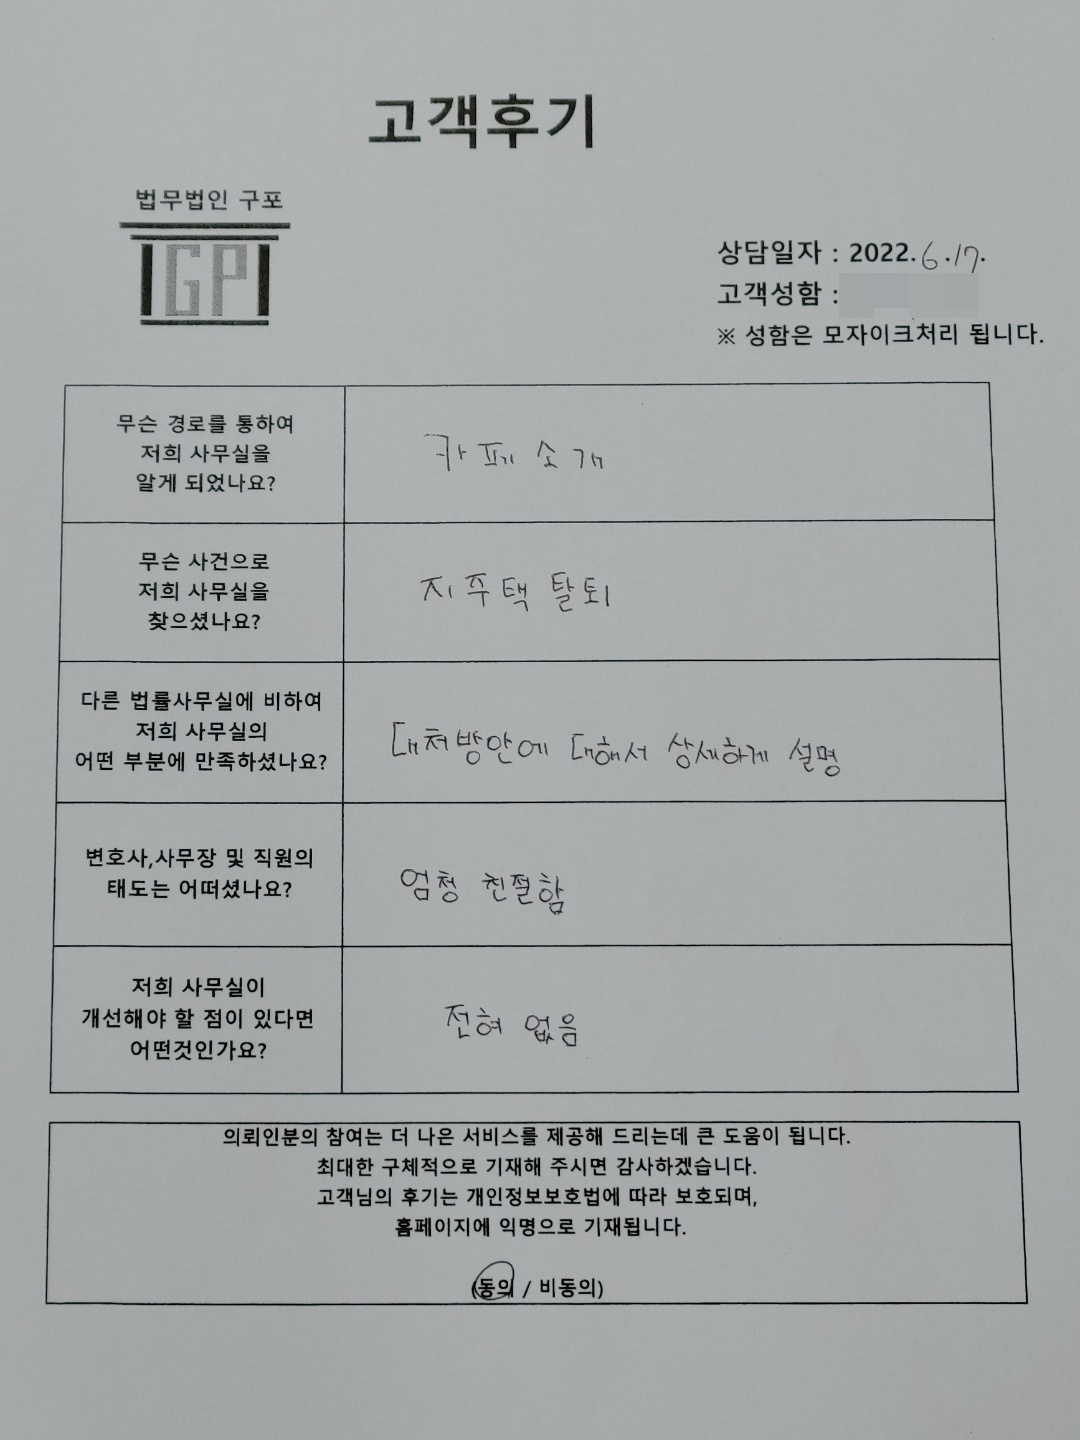 고객후기
법무법인 구포
IGPI
상담일자 : 2022.6.17.
고객성함 :
※ 성함은 모자이크처리 됩니다.
무슨 경로를 통하여
저희 사무실을
알게 되었나요?
카페소개
무슨 사건으로
저희 사무실을
찾으셨나요?
지주택 탈퇴
다른 법률사무실에 비하여
저희 사무실의
어떤 부분에 만족하셨나요?
대처방안에 대해서 상세하게 설명
변호사,사무장 및 직원의
태도는 어떠셨나요?
엄청 친절함
저희 사무실이
개선해야 할 점이 있다면
어떤것인가요?
전혀 없음
의뢰인분의 참여는 더 나은 서비스를 제공해 드리는데 큰 도움이 됩니다.
최대한 구체적으로 기재해 주시면 감사하겠습니다.
고객님의 후기는 개인정보보호법에 따라 보호되며,
홈페이지에 익명으로 기재됩니다.
(동의 / 비동의)